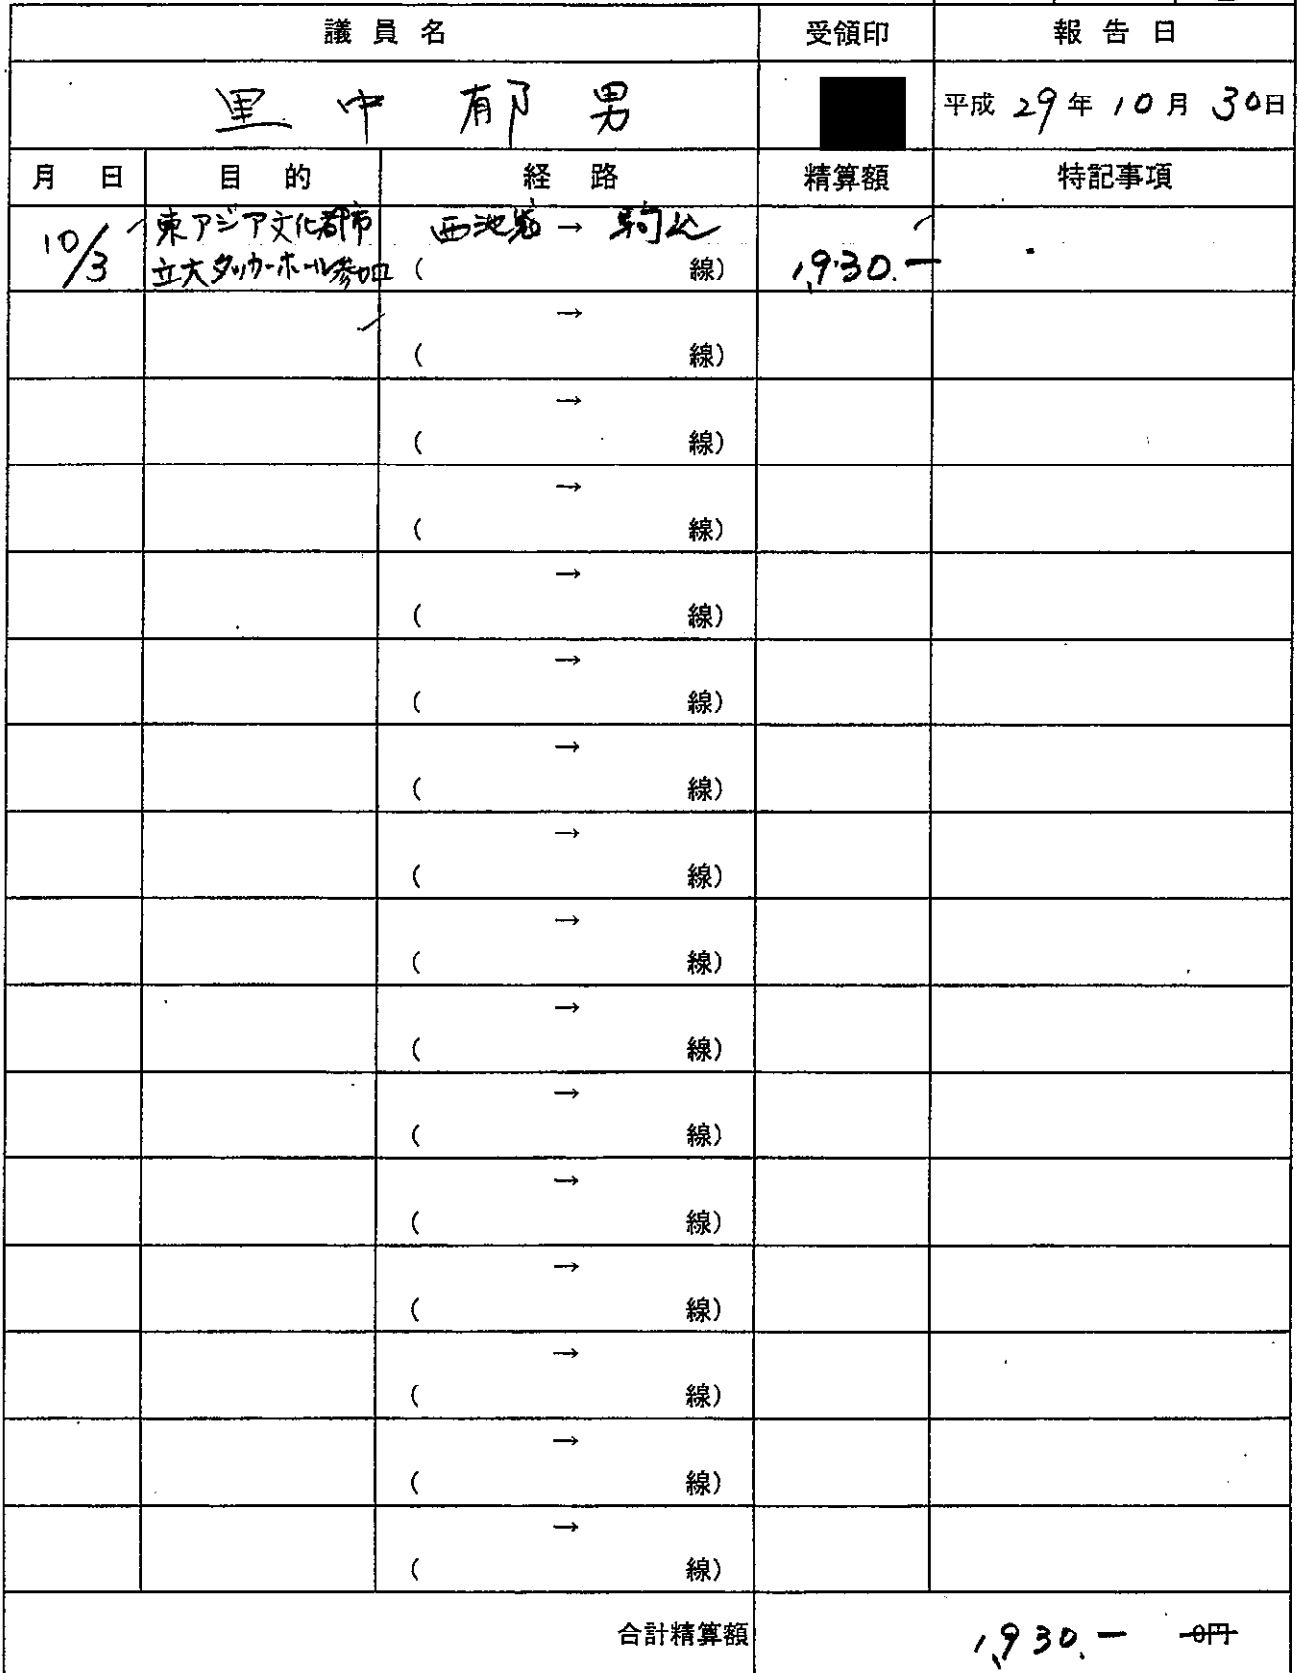 議員名 受領印 報告日
里中郁男 平成29年10月30日
月日 目的 経路 精算額 特記事項
10/3 東アジア文化都市 西池袋 → 駒込
立大タッカーホール参加 ( 線) 1,930.-
→
( 線)
→
( 線)
→
( 線)
→
( 線)
→
( 線)
→
( 線)
→
( 線)
→
( 線)
→
( 線)
→
( 線)
→
( 線)
→
( 線)
→
( 線)
→
( 線)
→
( 線)
合計精算額 1,930.- 0円